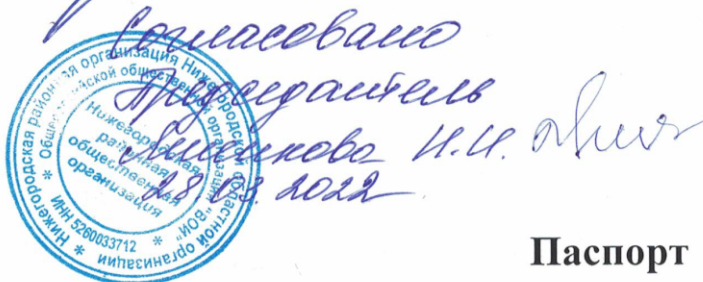 Согласовано
Председатель
Н.И.
28.03.2022
Нижегородская районная организация Нижегородской областной организации
Общероссийской общественной организации "ВОИ"
ИНН 5260033712
Нижегородская
районная
общественная
организация
Паспорт